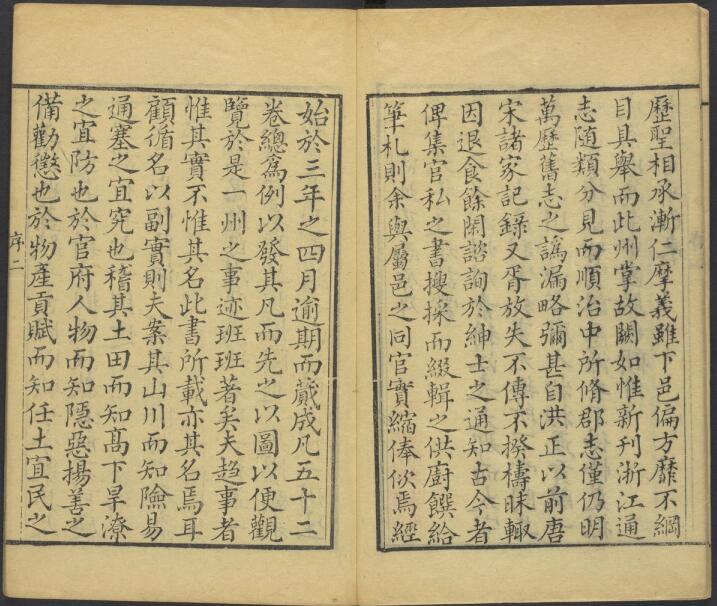 歷聖相承漸仁摩義雖下邑偏方靡不綱
目具舉而此州掌故闕如惟新刊浙江通
志随類分見而順治中所脩郡志僅仍明
萬歷舊志之譌漏略彌甚自洪正以前唐
宋諸家記錄又胥放失不傳不揆檮昧輙
因退食餘閑諮詢於紳士之通知古今者
俾集官私之書搜採而綴輯之供廚饌給
筆札則余與屬邑之同官實縮俸佽焉經
始於三年之四月逾期而蕆成凡五十二
卷總為例以發其凡而先之以圖以便觀
覽於是一州之事迹班班著矣夫趋事者
惟其實不惟其名此書所載亦其名焉耳
顧循名以副實則夫案其山川而知險易
通塞之宜究也稽其土田而知高下旱潦
之宜防也於官府人物而知隱惡揚善之
備勸懲也於物產貢賦而知任土宜民之
序二